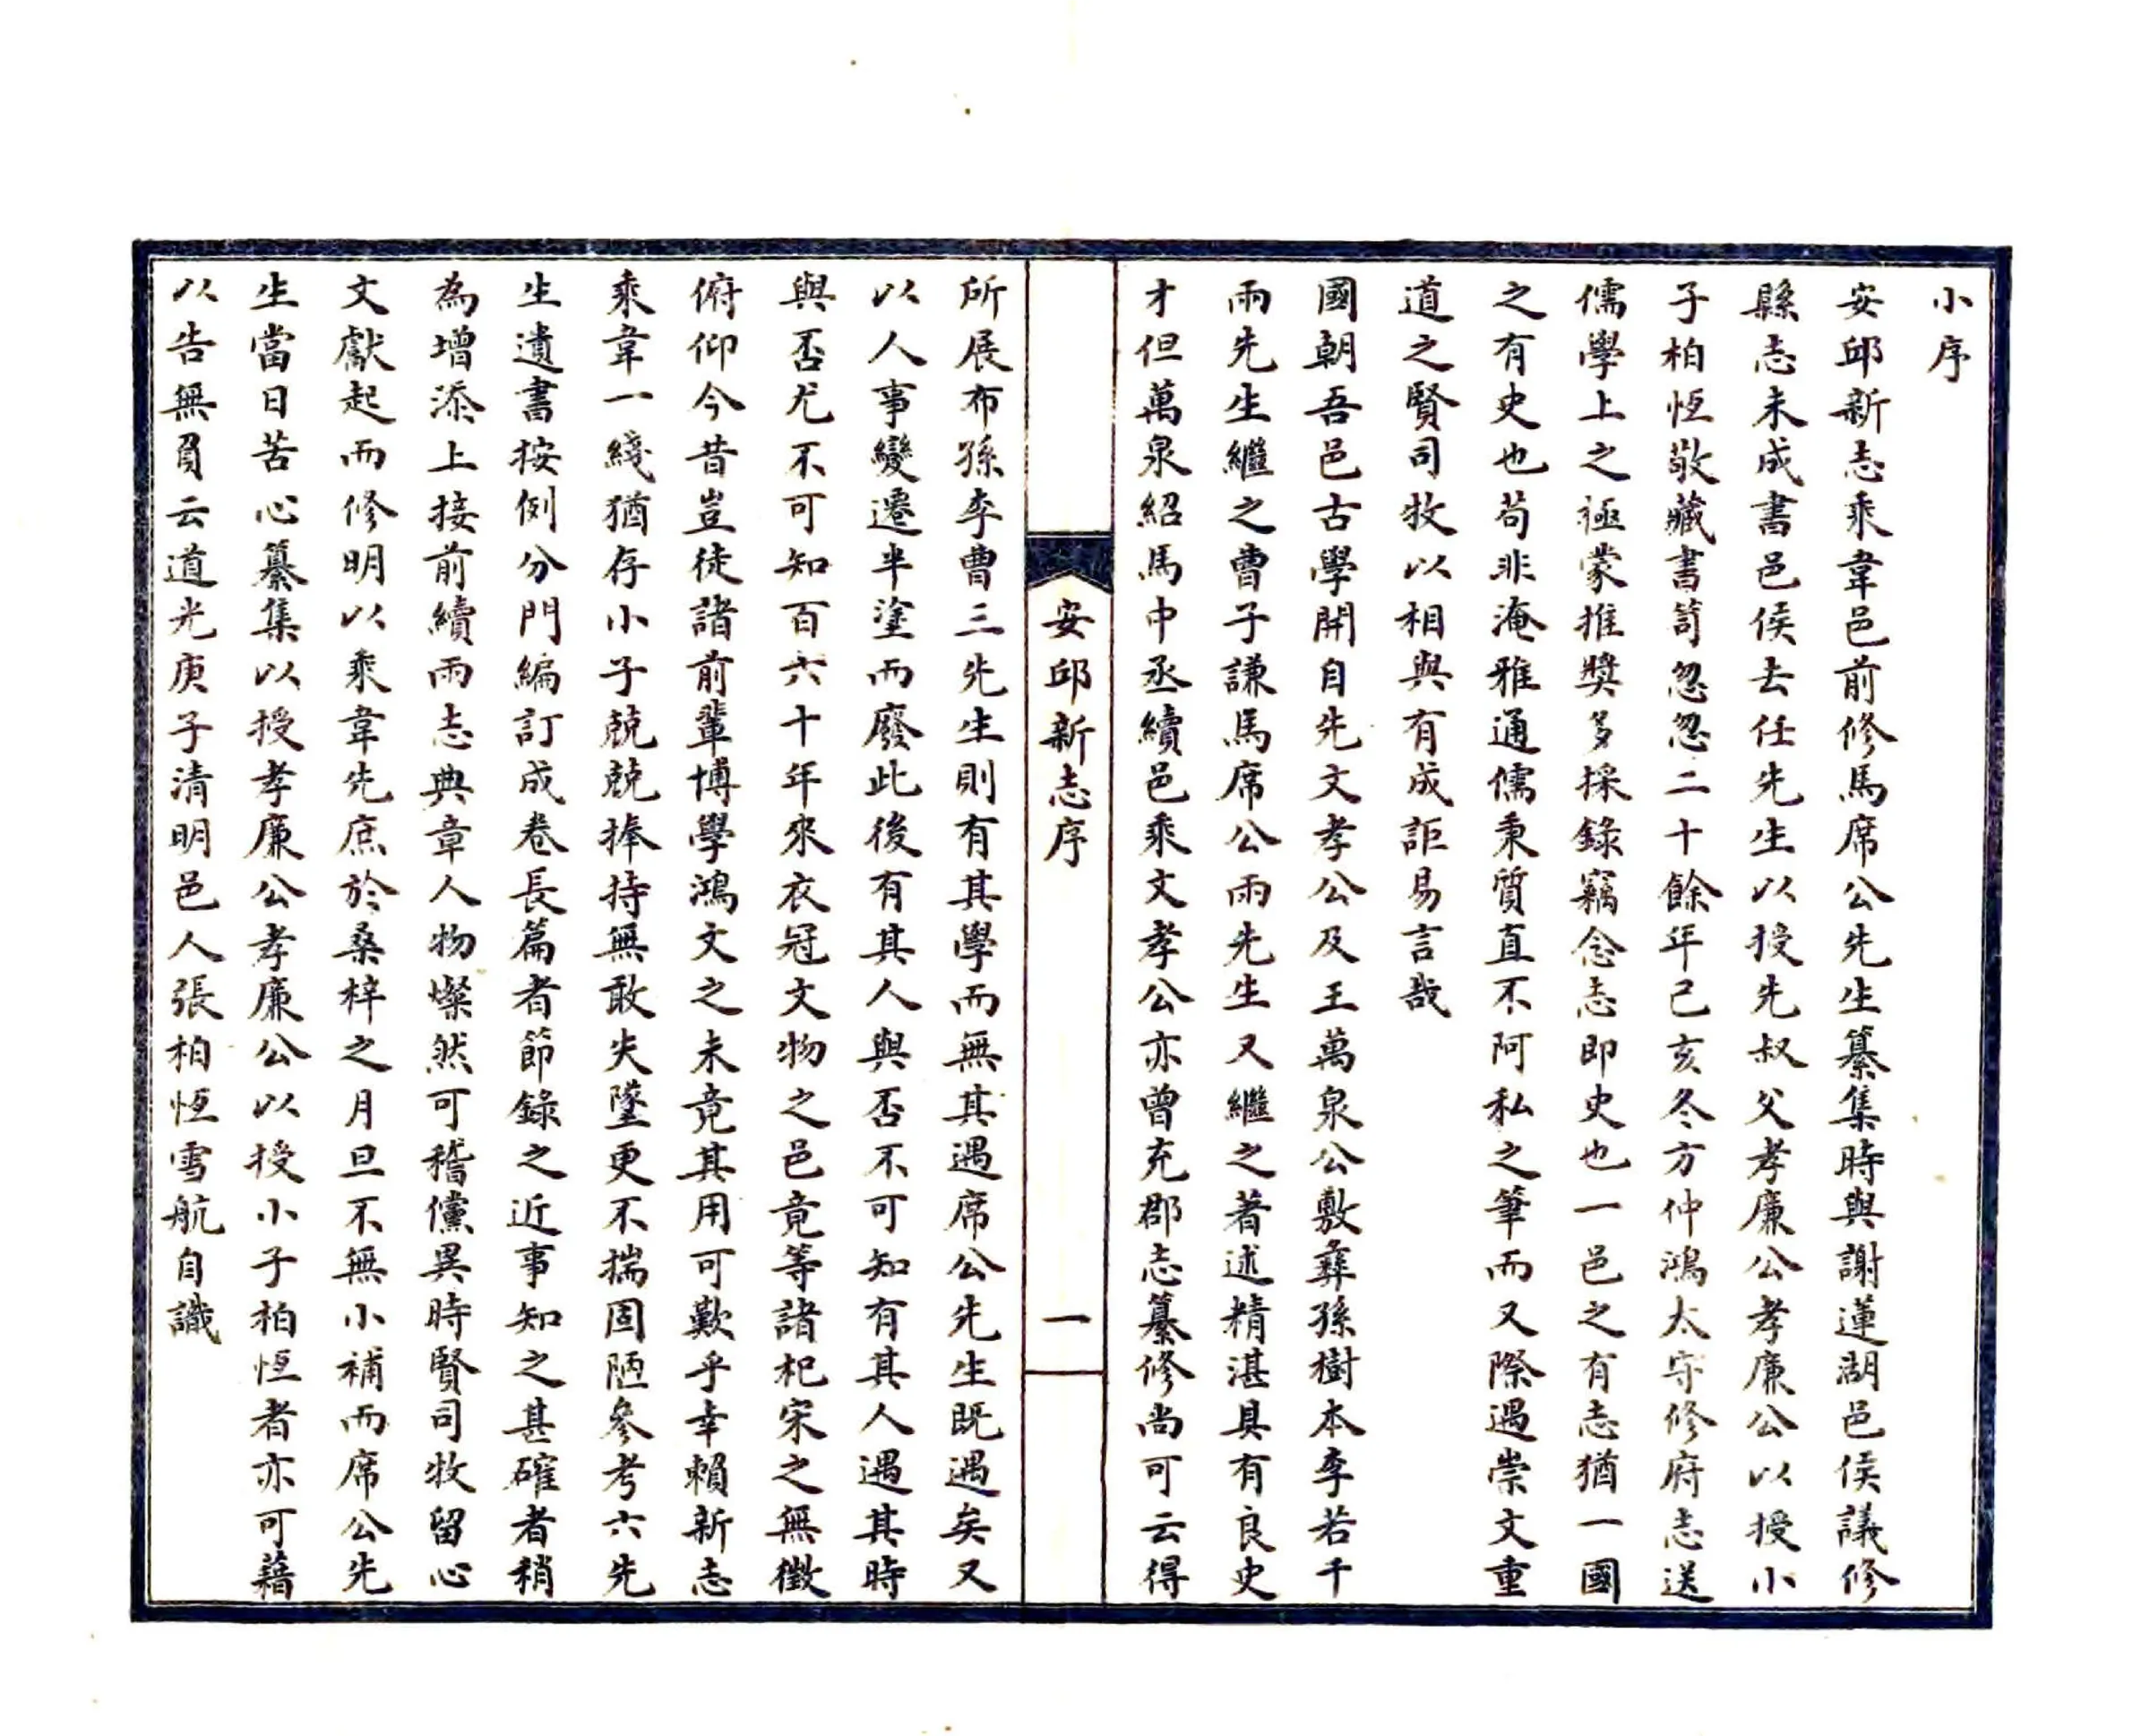 小序
安邱新志乘韋邑前修馬席公先生纂集時與謝蓮湖邑侯議修
縣志未成書邑侯去任先生以授先叔父孝廉公孝廉公以授小
子柏恆敬藏書笥忽忽二十餘年己亥冬方仲鴻太守修府志送
儒學上之極蒙推獎多採錄竊念志即史也一邑之有志猶一國
之有史也苟非淹雅通儒秉質直不阿私之筆而又際遇崇文重
道之賢司牧以相與有成詎易言哉
國朝吾邑古學開自先文孝公及王萬泉公敷彝孫樹本李若千
兩先生繼之曹子謙馬席公兩先生又繼之著述精湛具有良史
才但萬泉紹馬中丞續邑乘文孝公亦曾充郡志纂修尚可云得
安邱新志序
一
所展布孫李曹三先生則有其學而無其遇席公先生既遇矣又
以人事變遷半塗而廢此後有其人與否不可知有其人遇其時
與否尤不可知百六十年來衣冠文物之邑竟等諸杞宋之無徵
俯仰今昔豈徒諸前輩博學鴻文之未竟其用可歎乎幸賴新志
乘韋一綫猶存小子兢兢捧持無敢失墜更不揣固陋參考六先
生遺書按例分門編訂成卷長篇者節錄之近事知之甚確者稍
為增添上接前續兩志典章人物燦然可稽儻異時賢司牧留心
文獻起而修明以乘韋先庶於桑梓之月旦不無小補而席公先
生當日苦心纂集以授孝廉公孝廉公以授小子柏恆者亦可藉
以告無負云道光庚子清明邑人張柏恆雪航自識